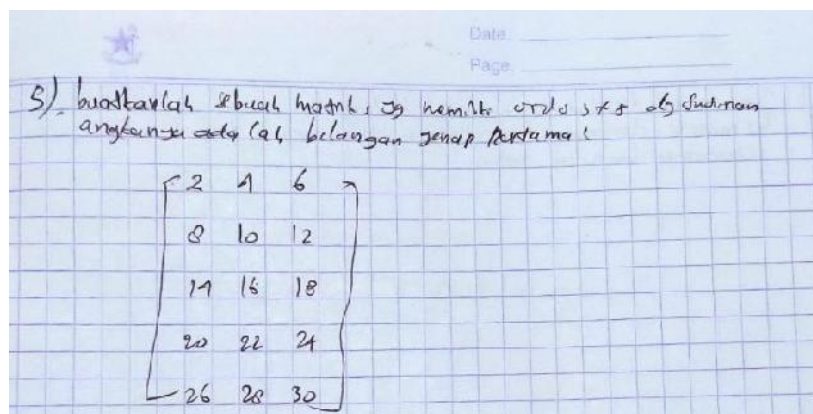 Date
Page
5) buatkanlah sebuah matrik, yg memilki ordo 5x3 dg susunan
angkanya adalah belangan genap pertama!
2 4 6
8 10 12
14 16 18
20 22 24
26 28 30